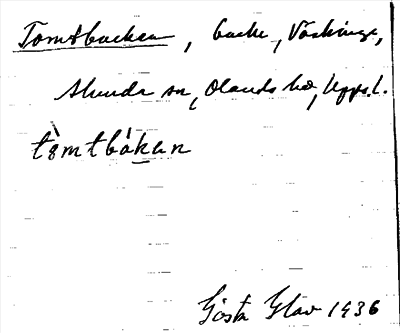 Tomtbacken, backe, Väskinge,
Alunda sn, Olands hd, Uppl.
tòmtbákan
Gösta Glav 1936